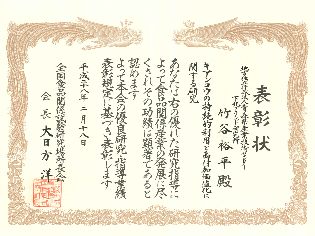 表彰状
地方独立行政法人青森県産業技術センター
下北ブランド研究所
竹谷裕平殿
キアンコウの持続的利用と高付加価値化に
関する研究
あなたは右の優れた研究指導に
よって食品関係産業の発展に尽
くされその功績は顕著であると
認めます
よって本会の優良研究・指導業績
表彰規定に基づき表彰します
平成二八年二月十八日
全国食品関係試験研究場所長会
会長 大日方洋